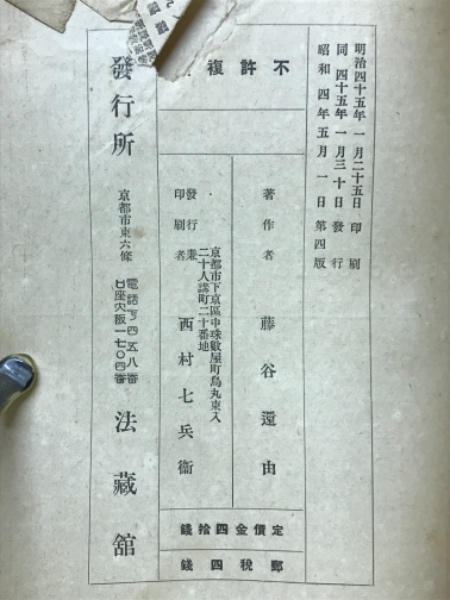 明治四十五年一月二十五日 印刷
同 四十五年一月三十日 發行
昭和四年五月一日 第四版
不許複
著作者 藤谷還由
京都市下京區中珠數屋町烏丸東入
二十人講町二十番地
發行兼
印刷者 西村七兵衞
定價金四拾錢
郵稅四錢
發行所
京都市東六條
法藏館